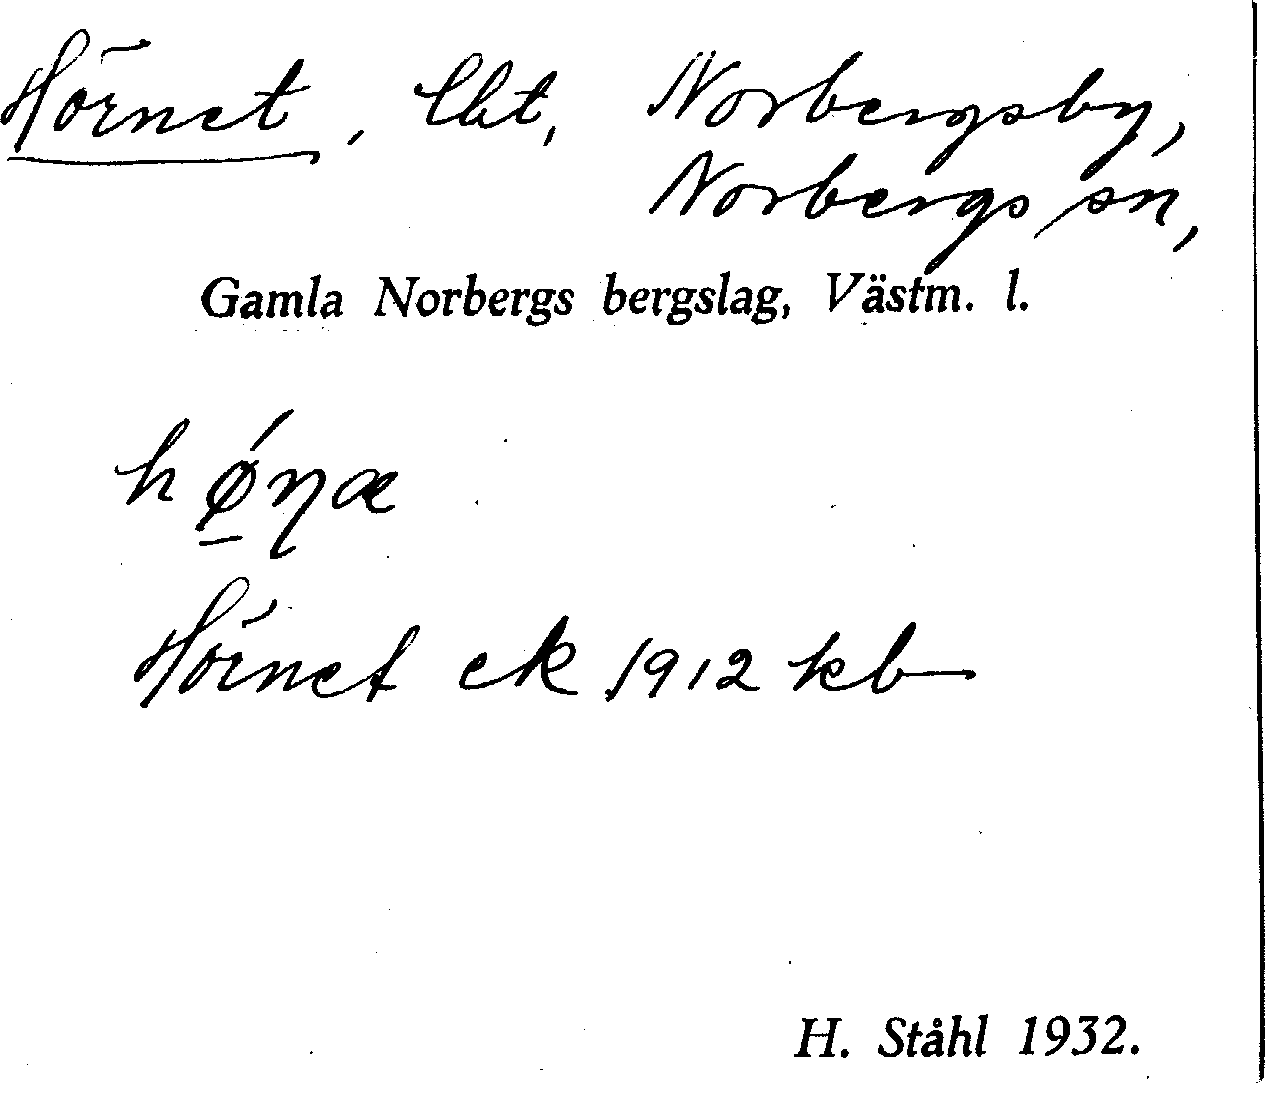 Hörnet, lht, Norbergsby,
Norbergs sn,
Gamla Norbergs bergslag, Västm. l.
hǿ̠ɳæ
Hörnet ek 1912 kb
H. Ståhl 1932.